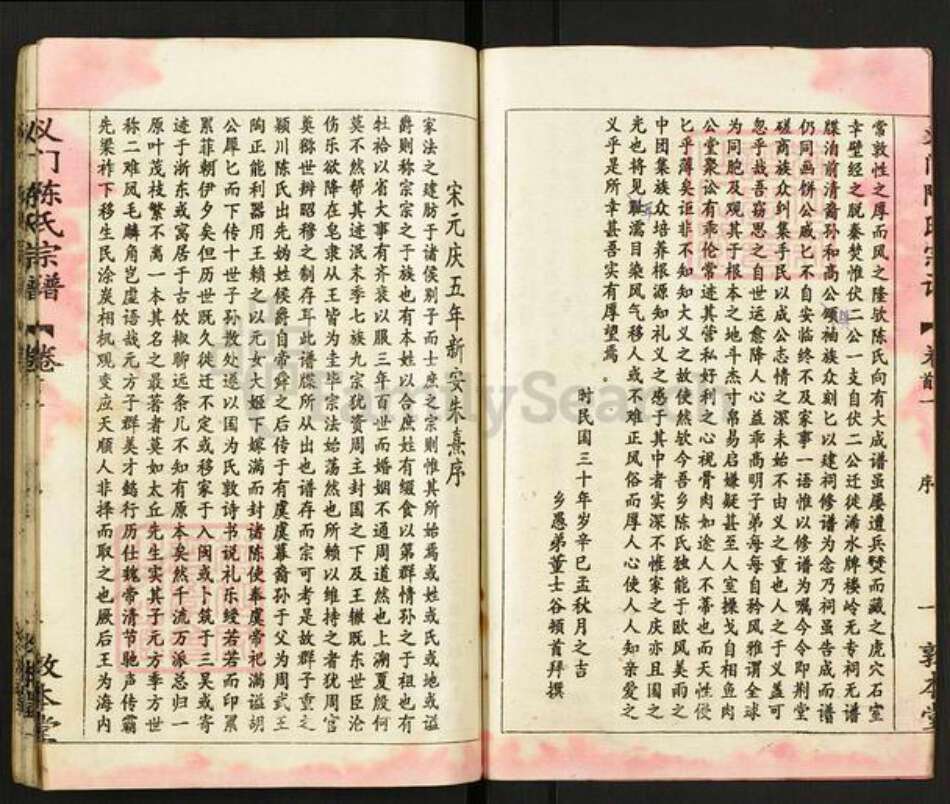 常敦性之厚而风之隆钦陈氏向有大成谱虽屡遭兵燹而藏之虎穴石室
幸壁经之脱秦焚惟伏二公一支自伏二公迁徙浠水牌楼岭无专祠无谱
牒洎前清裔孙和高公领袖族众刻匕以建祠修谱为念乃祠虽告成而谱
仍同画饼公戚匕不自安临终不及家事一语惟以修谱为嘱今令即荆堂
磋商族众纠集手民以成公志情之深未始不由义之重也人之于义盖可
忽乎哉吾窃思之自世运愈降人心益乖高明子弟每每自矜风雅谓全球
为同胞及观其于根本之地斗杰寸帛易启嫌疑甚至人室操戈自相鱼肉
公堂聚讼有乖伦常述其营私好利之心视骨肉如途人不蒂也而天性侵
匕乎薄矣讵非不知大义之故使然钦今吾乡陈氏独能于欧风美雨之
中团集族众培养根源知礼义之悫于其中者实深不惟家之庆亦且国之
光也将见耳濡目染风气移人或不难正风俗而厚人心使人人知亲爱之
义乎是所幸甚吾实有厚望焉
时民国三十年岁辛巳孟秋月之吉
乡愚弟董士谷顿首拜撰
宋元庆五年新安朱熹序
家法之建肪于诸侯别子而士庶之宗则惟其所始焉或以姓或氏或地或谥
爵则称宗宗之于族也有本姓以合庶姓有缀食以第群情孙之于祖也有
牡祫以省大事有齐衰以服三年百世而婚姻不通周道然也上溯夏殷何
莫不然帮其迹泯末季七族九宗犹资周主封国之下及王辙既东世臣沦
伤乐欲降在皂隶从王皆为圭毕宗法始荡然也所赖以维持之者犹周官
奠貕世辨昭穆之制存耳此谱牒所从出也谱存而宗可考是故群子重之
颍川陈氏出先妫姓候爵自帝舜之后传于有虞虞幕裔孙于父为周武王
陶正能利器用王赖之以元女大姬下嫁满而封诸陈使奉虞帝祀满谥胡
公犀匕而下传十世子孙散处遂以国为氏敦诗书说礼乐绶若若而印累
累菲朝伊夕矣但历世既久徙迁不定或移家于入闽或卜筑于三吴或寄
迹于浙东或寓居于古饮椒聊远条几不知有原本矣然千流万派总归一
原叶茂枝繁不离一本其名之最著者莫如太丘先生实其子元方季方世
称二难凤毛麟角岂虚语哉元方子群美才懿行历仕魏帝清节驰声传霸
先梁祚下移生民涂炭相机观变应天顺人非择而取之也厥后王为海内
义门陈氏宗谱
卷
敦本堂
序